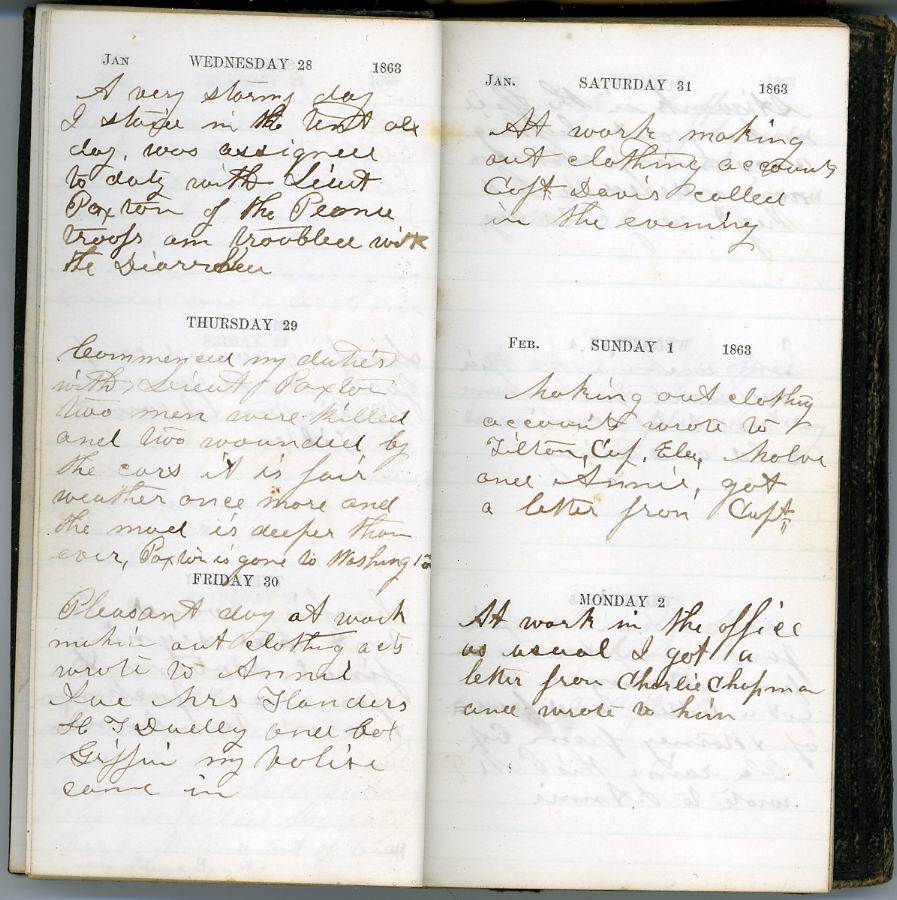 JAN WEDNESDAY 28 1863
A very stormy day
I staid in the tent all
day, was assigned
to duty with Lieut
Paxton of the Peonne
troops am troubled with
the Diarrohea
THURSDAY 29
Commenced my duties
with Lieut Paxton
two men were killed
and two wounded by
the cars it is fair
weather once more and
the mud is deeper than
ever, Paxton is gone to Washington
FRIDAY 30
Pleasant day at work
makin out clothing acts
wrote to Annie
Mrs Flanders
H T Dudley and
Giffin my valise
came in
JAN. SATURDAY 31 1863
At work making
out clothing accounts
Capt. Davis called
in the evening
FEB. SUNDAY 1 1863
Making out clothing
accounts wrote to
Tilton,
and Annie, got
a letter from Capt
MONDAY 2
At work in the office
as usual I got a
letter from Charlie Chapman
and wrote to him